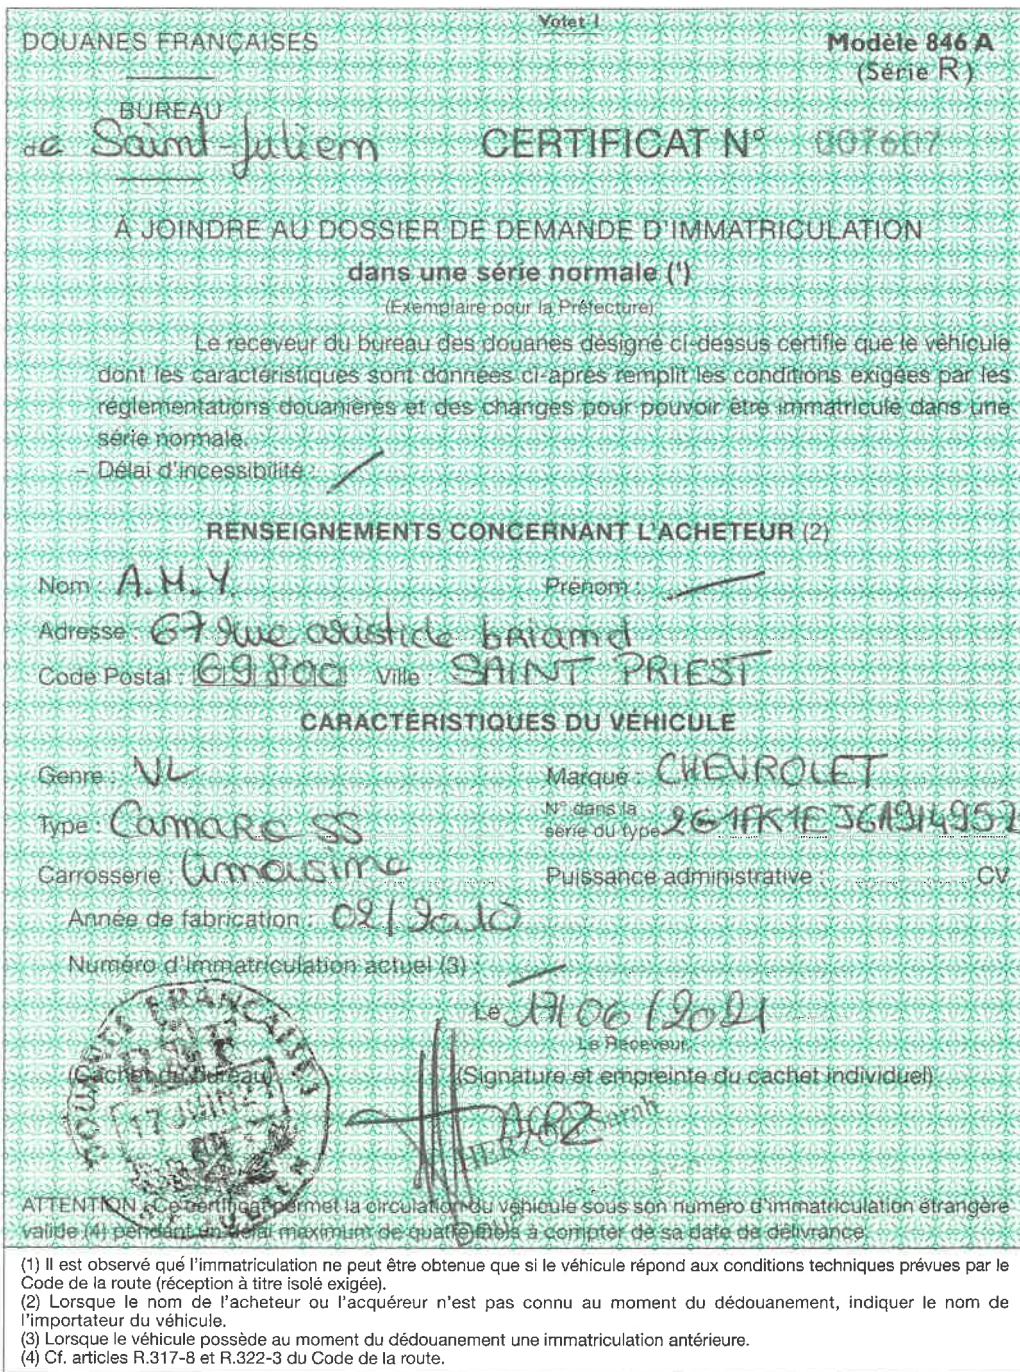 Volet 1
DOUANES FRANÇAISES
Modèle 846 A
(Série R)
BUREAU
de Saint-Julien
CERTIFICAT N° 007607
À JOINDRE AU DOSSIER DE DEMANDE D'IMMATRICULATION
dans une série normale (¹)
(Exemplaire pour la Préfecture)
Le receveur du bureau des douanes désigné ci-dessus certifie que le véhicule
dont les caractéristiques sont données ci-après remplit les conditions exigées par les
réglementations douanières et des changes pour pouvoir être immatriculé dans une
série normale.
– Délai d'incessibilité :
RENSEIGNEMENTS CONCERNANT L'ACHETEUR (2)
Nom : A.M.Y. Prénom :
Adresse : 67 rue aristide briand
Code Postal : 69800 Ville : SAINT PRIEST
CARACTÉRISTIQUES DU VÉHICULE
Genre : VL Marque : CHEVROLET
Type : Camaro SS N° dans la série du type 2G1FK1EJ6A914957
Carrosserie : limousine Puissance administrative : CV
Année de fabrication : 02/2010
Numéro d'immatriculation actuel (3) :
Le 17/06/2021
Le Receveur,
(Cachet du Bureau) (Signature et empreinte du cachet individuel)
DOUANES FRANÇAISES
17 JUIN 21
HERZOG Sarah
ATTENTION : Ce certificat permet la circulation du véhicule sous son numéro d'immatriculation étrangère
valide (4) pendant un délai maximum de quatre mois à compter de sa date de délivrance.
(1) Il est observé que l'immatriculation ne peut être obtenue que si le véhicule répond aux conditions techniques prévues par le
Code de la route (réception à titre isolé exigée).
(2) Lorsque le nom de l'acheteur ou l'acquéreur n'est pas connu au moment du dédouanement, indiquer le nom de
l'importateur du véhicule.
(3) Lorsque le véhicule possède au moment du dédouanement une immatriculation antérieure.
(4) Cf. articles R.317-8 et R.322-3 du Code de la route.